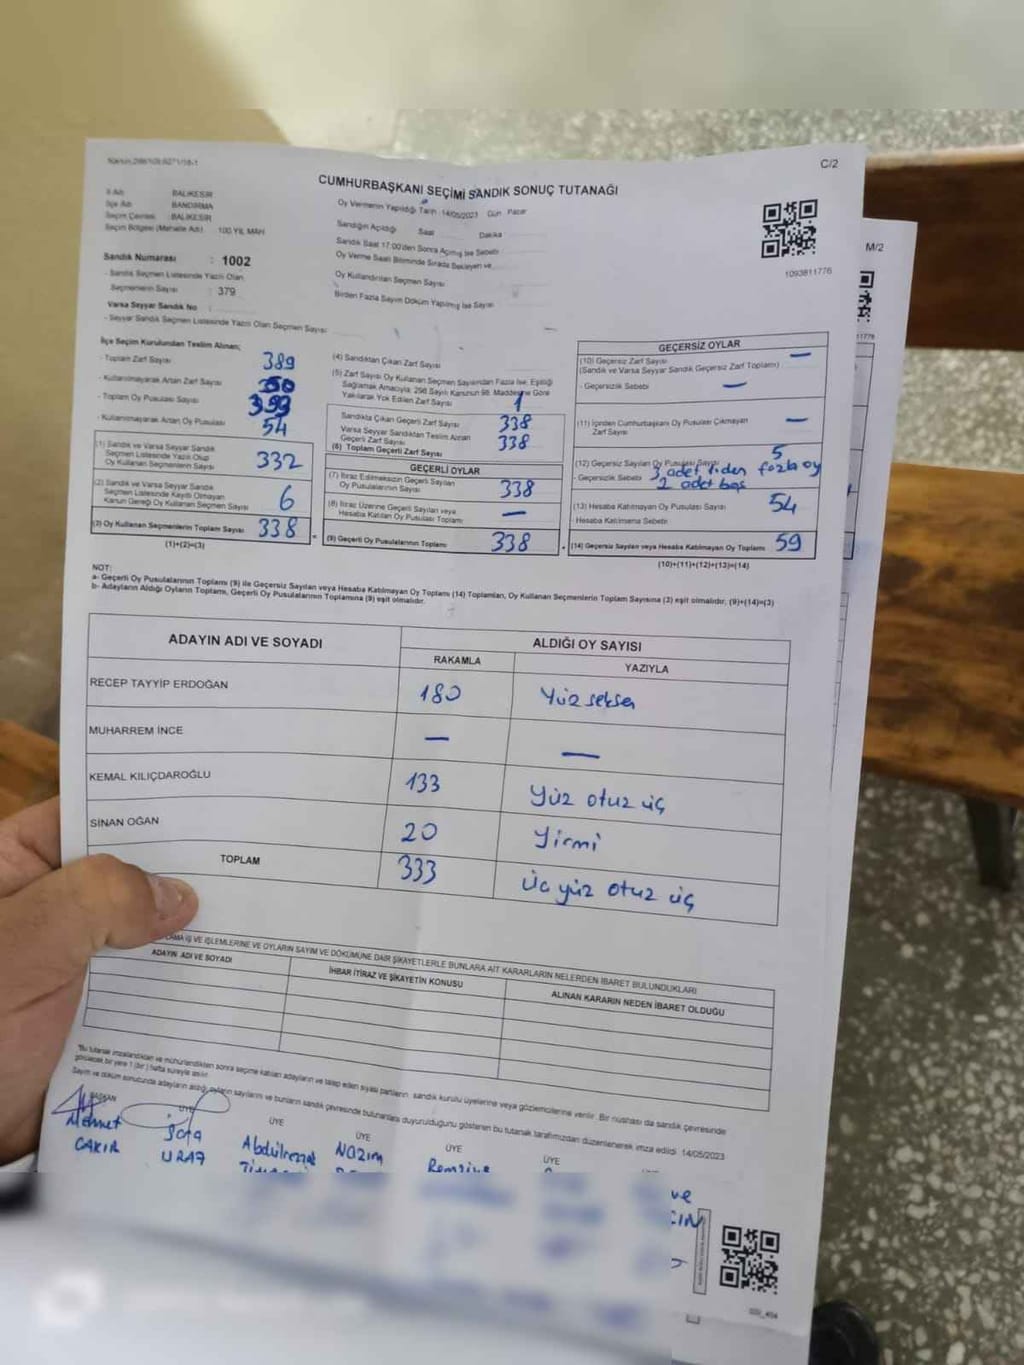 C/2
CUMHURBAŞKANI SEÇİMİ SANDIK SONUÇ TUTANAĞI
İl Adı BALIKESİR
İlçe Adı BANDIRMA
Seçim Çevresi : BALIKESİR
Seçim Bölgesi (Mahalle Adı) 100.YIL MAH
Sandık Numarası : 1002
- Sandık Seçmen Listesinde Yazılı Olan
Seçmenlerin Sayısı : 379
Varsa Seyyar Sandık No
- Seyyar Sandık Seçmen Listesinde Yazılı Olan Seçmen Sayısı
Oy Vermenin Yapıldığı Tarih : 14/05/2023 Gün Pazar
Sandığın Açıldığı Saat Dakika
Sandık Saat 17:00'den Sonra Açılmış İse Sebebi
Oy Verme Saati Bitiminde Sırada Bekleyen ve
Oy Kullandırılan Seçmen Sayısı
Birden Fazla Sayım Döküm Yapılmış İse Sayısı
1093811776
M/2
İlçe Seçim Kurulundan Teslim Alınan;
- Toplam Zarf Sayısı 389
- Kullanılmayarak Artan Zarf Sayısı
- Toplam Oy Pusulası Sayısı
- Kullanılmayarak Artan Oy Pusulası 54
(1) Sandık ve Varsa Seyyar Sandık
Seçmen Listesinde Yazılı Olup
Oy Kullanan Seçmenlerin Sayısı 332
(2) Sandık ve Varsa Seyyar Sandık
Seçmen Listesinde Kayıtlı Olmayan
Kanun Gereği Oy Kullanan Seçmen Sayısı 6
(3) Oy Kullanan Seçmenlerin Toplam Sayısı 338
(1)+(2)=(3)
(4) Sandıktan Çıkan Zarf Sayısı
(5) Zarf Sayısı Oy Kullanan Seçmen Sayısından Fazla İse, Eşitliği
Sağlamak Amacıyla; 298 Sayılı Kanunun 98. Maddesine Göre
Yakılarak Yok Edilen Zarf Sayısı 1
Sandıkta Çıkan Geçerli Zarf Sayısı 338
Varsa Seyyar Sandıktan Teslim Alınan
Geçerli Zarf Sayısı 338
(6) Toplam Geçerli Zarf Sayısı
GEÇERLİ OYLAR
(7) İtiraz Edilmeksizin Geçerli Sayılan
Oy Pusulalarının Sayısı 338
(8) İtiraz Üzerine Geçerli Sayılan veya
Hesaba Katılan Oy Pusulası Toplamı —
(9) Geçerli Oy Pusulalarının Toplamı 338
GEÇERSİZ OYLAR
(10) Geçersiz Zarf Sayısı —
(Sandık ve Varsa Seyyar Sandık Geçersiz Zarf Toplamı)
- Geçersizlik Sebebi —
(11) İçinden Cumhurbaşkanı Oy Pusulası Çıkmayan
Zarf Sayısı —
(12) Geçersiz Sayılan Oy Pusulası Sayısı 5
- Geçersizlik Sebebi 3 adet 1'den fazla oy
2 adet boş
(13) Hesaba Katılmayan Oy Pusulası Sayısı 54
- Hesaba Katılmama Sebebi
(14) Geçersiz Sayılan veya Hesaba Katılmayan Oy Toplamı 59
(10)+(11)+(12)+(13)=(14)
NOT:
a- Geçerli Oy Pusulalarının Toplamı (9) ile Geçersiz Sayılan veya Hesaba Katılmayan Oy Toplamı (14) Toplamları, Oy Kullanan Seçmenlerin Toplam Sayısına (3) eşit olmalıdır, (9)+(14)=(3)
b- Adayların Aldığı Oyların Toplamı, Geçerli Oy Pusulalarının Toplamına (9) eşit olmalıdır.
ADAYIN ADI VE SOYADI ALDIĞI OY SAYISI
RAKAMLA YAZIYLA
RECEP TAYYİP ERDOĞAN 180 Yüz seksen
MUHARREM İNCE — —
KEMAL KILIÇDAROĞLU 133 Yüz otuz üç
SİNAN OĞAN 20 Yirmi
TOPLAM 333 Üc yüz otuz üç
İŞ VE İŞLEMLERİNE VE OYLARIN SAYIM VE DÖKÜMÜNE DAİR ŞİKAYETLERLE BUNLARA AİT KARARLARIN NELERDEN İBARET BULUNDUKLARI
ADAYIN ADI VE SOYADI İHBAR İTİRAZ VE ŞİKAYETİN KONUSU ALINAN KARARIN NEDEN İBARET OLDUĞU
"Bu tutanak imzalandıktan ve mühürlendikten sonra seçime katılan adayların ve talep eden siyasi partilerin sandık kurulu üyelerine veya gözlemcilerine verilir. Bir nüshası da sandık çevresinde
görülecek bir yere 1 (bir) hafta süreyle asılır.
Sayım ve döküm sonucunda adayların aldığı oyların sayılarını ve bunların sandık çevresinde bulunanlara duyurulduğunu gösteren bu tutanak tarafımızdan düzenlenerek imza edildi. 14/05/2023
BAŞKAN ÜYE ÜYE ÜYE ÜYE ÜYE
Mehmet
ÇAKIR
Abdülrezzak Nazım Remzive